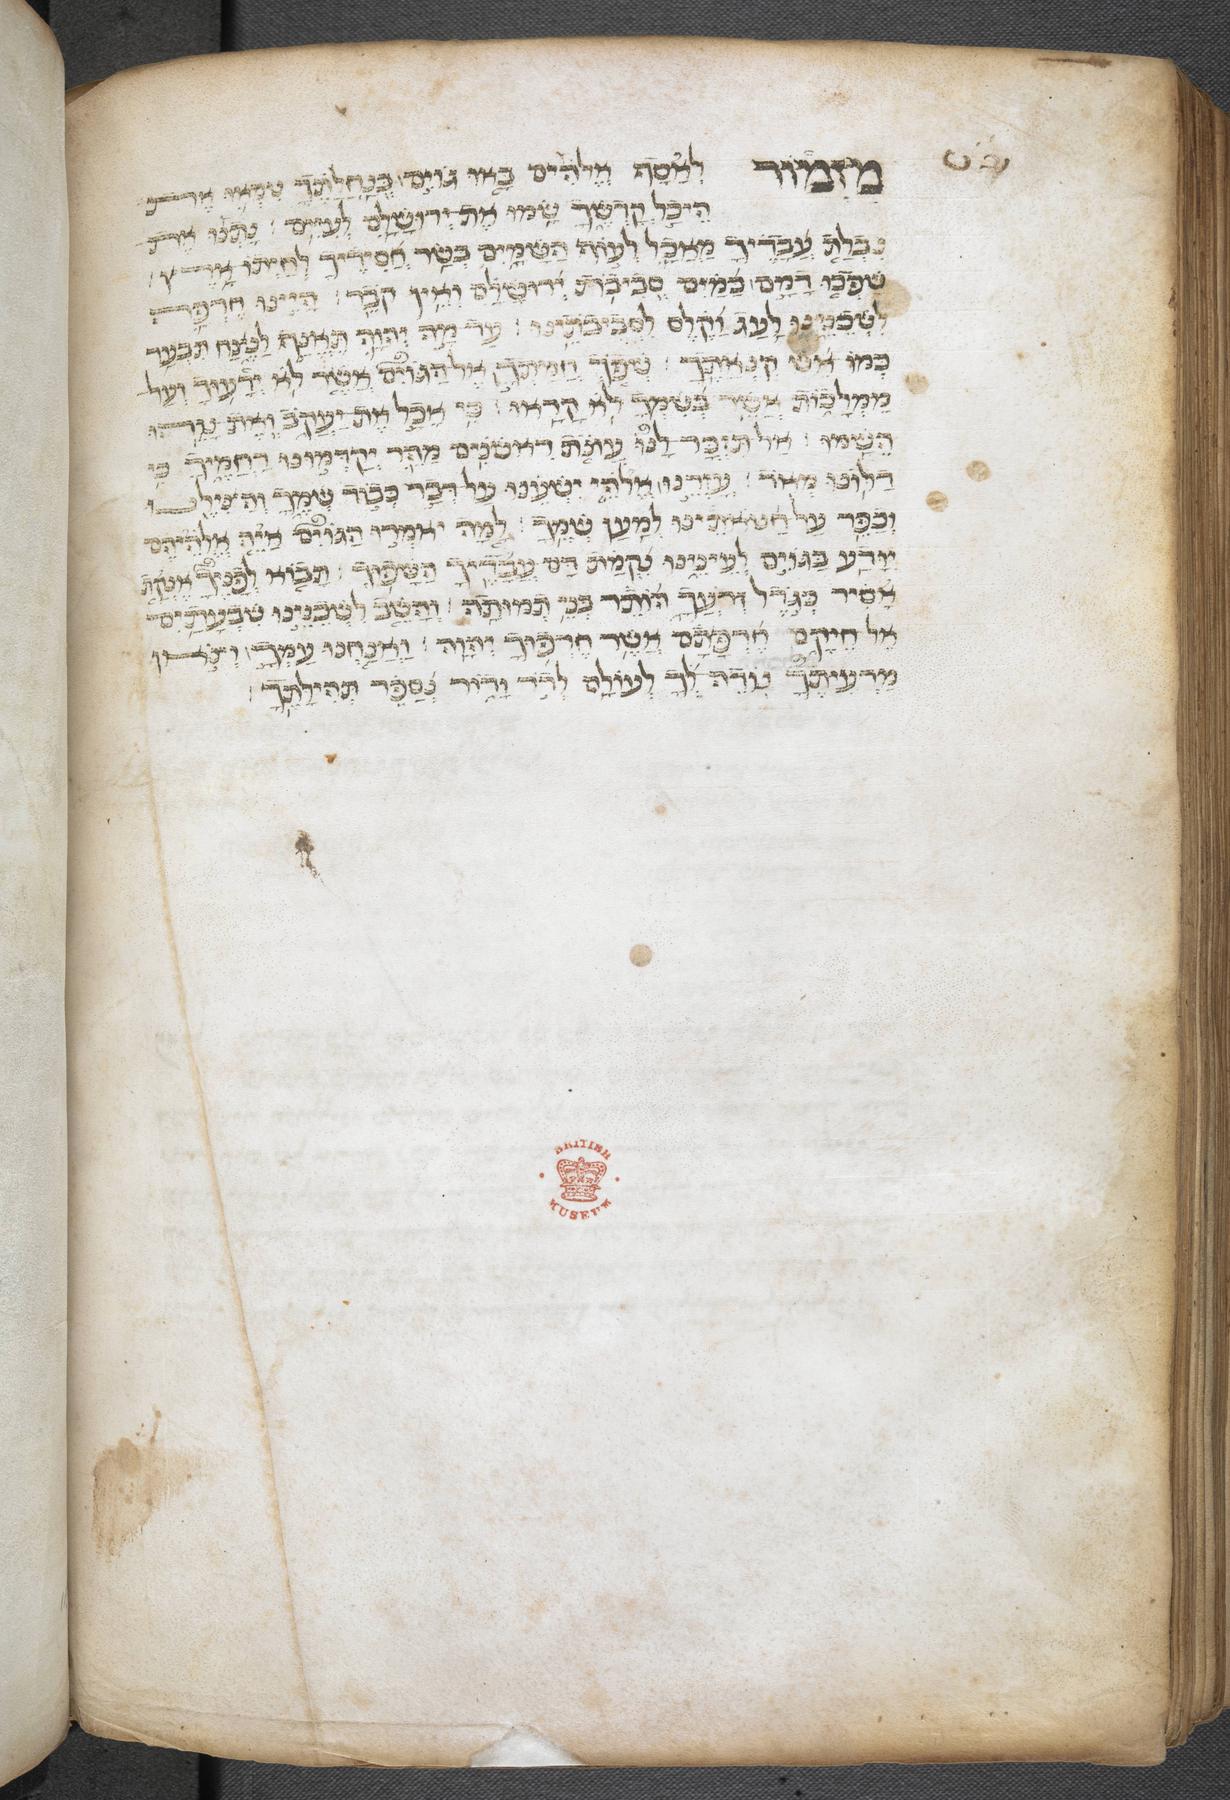 עט
מִזְמוֹר לְאָסָף אֱלֹהִים בָּאוּ גוֹיִם בְּנַחֲלָתֶךָ טִמְּאוּ אֶת
הֵיכַל קָדְשֶׁךָ שָׂמוּ אֶת יְרוּשָׁלִַם לְעִיִּים׃ נָתְנוּ אֶת
נִבְלַת עֲבָדֶיךָ מַאֲכָל לְעוֹף הַשָּׁמָיִם בְּשַׂר חֲסִידֶיךָ לְחַיְתוֹ אָרֶץ׃
שָׁפְכוּ דָמָם כַּמַּיִם סְבִיבוֹת יְרוּשָׁלִָם וְאֵין קֹבֵר׃ הָיִינוּ חֶרְפָּה
לִשְׁכֵנֵינוּ לַעַג וָקֶלֶס לִסְבִיבֹתֵינוּ׃ עַד מָה יְהוָה תֶּאֱנַף לָנֶצַח תִּבְעַר
כְּמוֹ אֵשׁ קִנְאָתֶךָ׃ שְׁפֹךְ חֲמָתְךָ אֶל הַגּוֹיִם אֲשֶׁר לֹא יְדָעוּךָ וְעַל
מַמְלָכוֹת אֲשֶׁר בְּשִׁמְךָ לֹא קָרָאוּ׃ כִּי אָכַל אֶת יַעֲקֹב וְאֶת נָוֵהוּ
הֵשַׁמּוּ׃ אַל תִּזְכָּר לָנוּ עֲוֹנֹת רִאשֹׁנִים מַהֵר יְקַדְּמוּנוּ רַחֲמֶיךָ כִּי
דַלּוֹנוּ מְאֹד׃ עָזְרֵנוּ אֱלֹהֵי יִשְׁעֵנוּ עַל דְּבַר כְּבוֹד שְׁמֶךָ וְהַצִּילֵנוּ
וְכַפֵּר עַל חַטֹּאתֵינוּ לְמַעַן שְׁמֶךָ׃ לָמָּה יֹאמְרוּ הַגּוֹיִם אַיֵּה אֱלֹהֵיהֶם
יִוָּדַע בַּגּוֹיִם לְעֵינֵינוּ נִקְמַת דַּם עֲבָדֶיךָ הַשָּׁפוּךְ׃ תָּבוֹא לְפָנֶיךָ אֶנְקַת
אָסִיר כְּגֹדֶל זְרוֹעֲךָ הוֹתֵר בְּנֵי תְמוּתָה׃ וְהָשֵׁב לִשְׁכֵנֵינוּ שִׁבְעָתַיִם
אֶל חֵיקָם חֶרְפָּתָם אֲשֶׁר חֵרְפוּךָ יְהוָה׃ וַאֲנַחְנוּ עַמְּךָ וְצֹאן
מַרְעִיתֶךָ נוֹדֶה לְּךָ לְעוֹלָם לְדֹר וָדוֹר נְסַפֵּר תְּהִילָּתֶךָ׃
BRITISH
MUSEUM